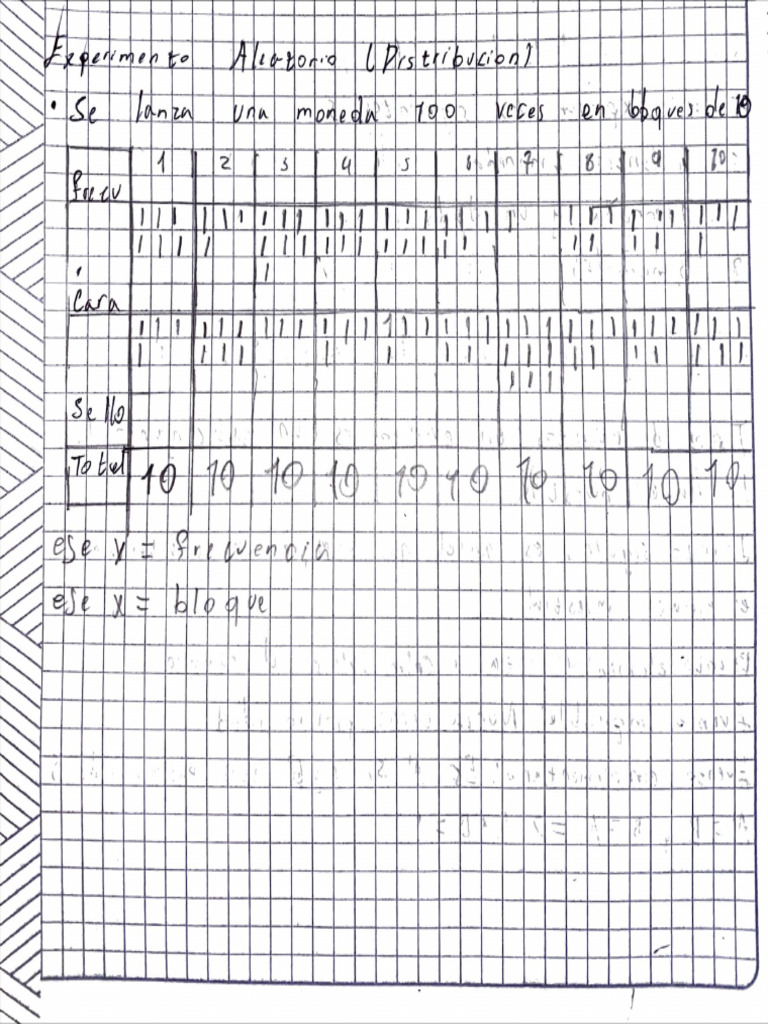 Experimento Aleatorio (Distribucion)
• Se lanza una moneda 100 veces en bloques de 10
1 2 3 4 5 6 7 8 9 10
frecu
||| ||| ||| ||| ||| ||| | ||| ||| |||
||| | ||| ||| ||| || || || |
|
Cara
||| ||| ||| ||| ||| ||| ||| ||| ||| |||
| ||| | | || ||| || || |||
|||
Sello
Total 10 10 10 10 10 10 10 10 10 10
eje y = frecuencia
eje x = bloque